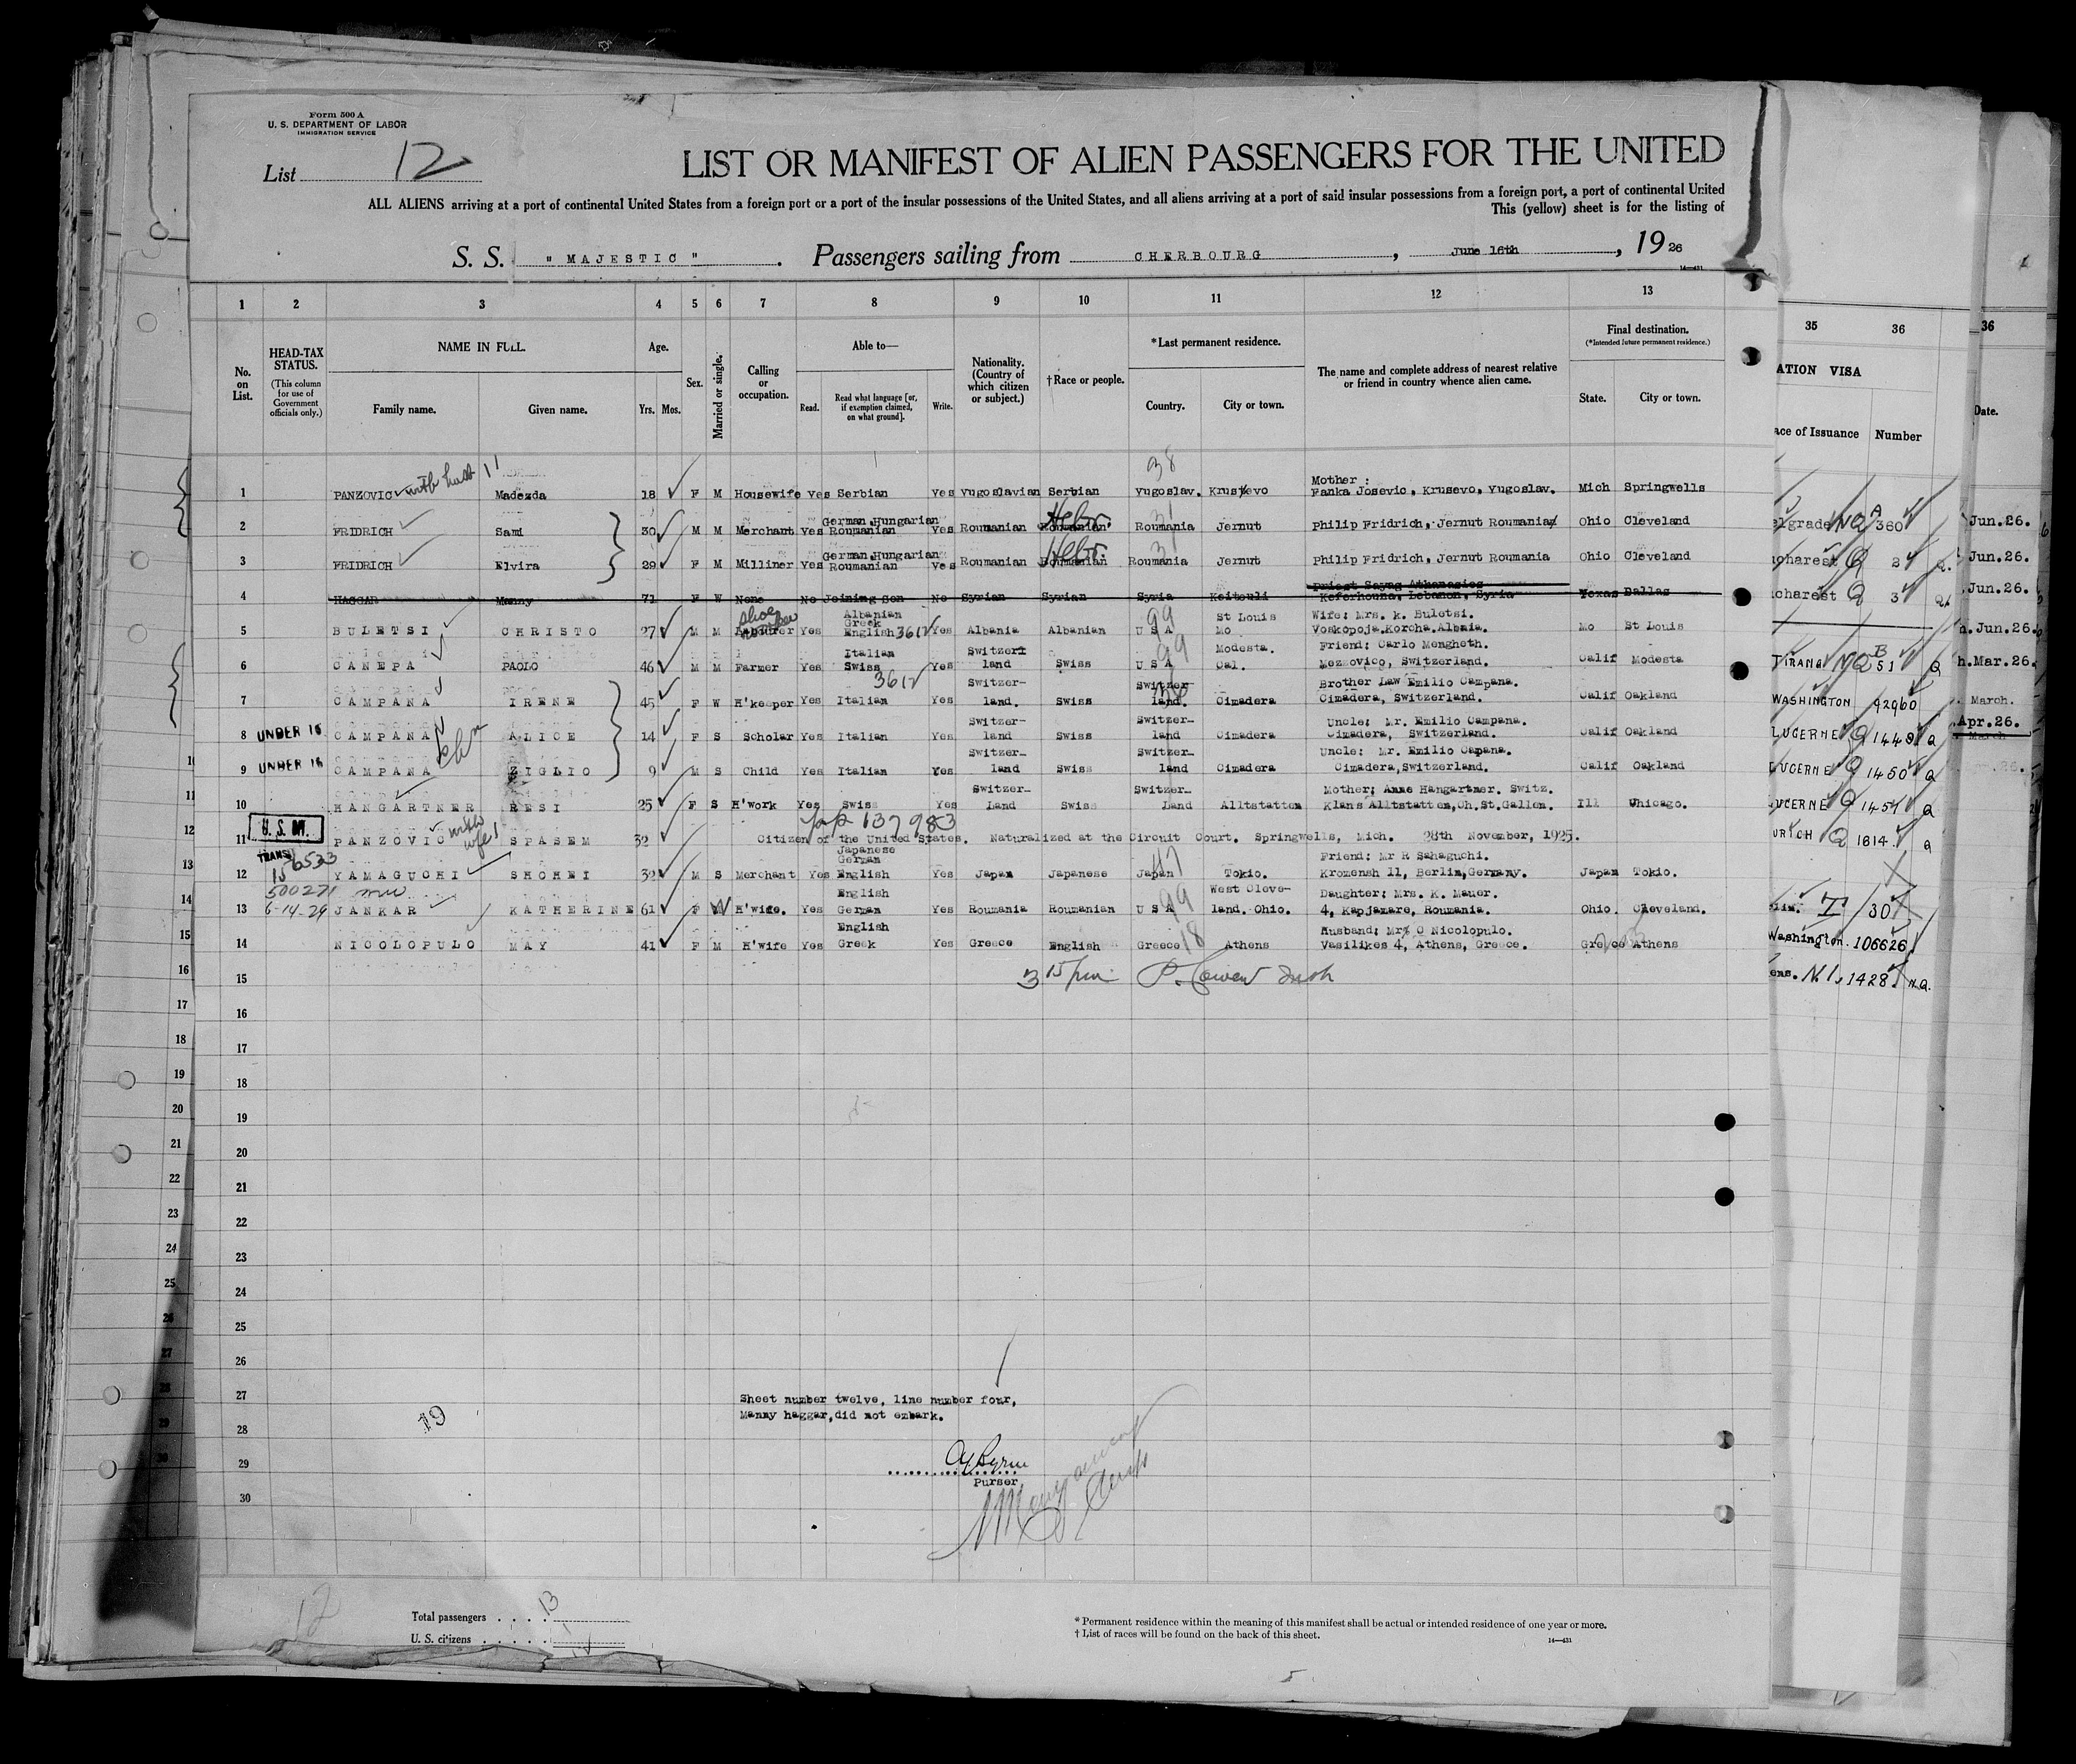 Form 500 A
U. S. DEPARTMENT OF LABOR
IMMIGRATION SERVICE
List 12
LIST OR MANIFEST OF ALIEN PASSENGERS FOR THE UNITED
ALL ALIENS arriving at a port of continental United States from a foreign port or a port of the insular possessions of the United States, and all aliens arriving at a port of said insular possessions from a foreign port, a port of continental United
This (yellow) sheet is for the listing of
S. S. "MAJESTIC". Passengers sailing from CHERBOURG, June 16th, 1926
14—431
1 2 3 4 5 6 7 8 9 10 11 12 13
No. on List.
HEAD-TAX STATUS.
(This column for use of Government officials only.)
NAME IN FULL.
Family name. Given name.
Age.
Yrs. Mos.
Sex.
Married or single.
Calling or occupation.
Able to—
Read. Read what language [or, if exemption claimed, on what ground]. Write.
Nationality. (Country of which citizen or subject.)
†Race or people.
*Last permanent residence.
Country. City or town.
The name and complete address of nearest relative or friend in country whence alien came.
Final destination.
(*Intended future permanent residence.)
State. City or town.
35 36
ATION VISA
ace of Issuance Number
36
Date.
38
1 PANZOVIC with husb 11 Madezda 18 F M Housewife Yes Serbian Yes Yugoslavian Serbian Yugoslav. Krusevo Mother: Panka Josevic, Krusevo, Yugoslav. Mich Springwells
2 FRIDRICH Sami 30 M M Merchant Yes German,Hungarian Roumanian Yes Roumanian Roumanian Hebr. 31 Roumania Jernut Philip Fridrich, Jernut Roumania Ohio Cleveland
3 FRIDRICH Elvira 29 F M Milliner Yes German,Hungarian Roumanian Yes Roumanian Roumanian Hebr. 31 Roumania Jernut Philip Fridrich, Jernut Roumania Ohio Cleveland
4 HAGGAR Manny 71 F W None No Joining Son No Syrian Syrian Syria Keitouli Priest Sayag Athanasios Keferhouna, Lebanon, Syria Texas Dallas
5 BULETSI CHRISTO 27 M M Labourer Yes Albanian Greek English 3612 Yes Albania Albanian 99 U S A St Louis Mo Wife: Mrs. k. Buletsi. Voskopoja.Korcha.Albnia. Mo St Louis
6 CANEPA PAOLO 46 M M Farmer Yes Italian Swiss Yes Switzerland Swiss 99 U S A Modesta. Cal. Friend: Carlo Mengheth. Mezzovico, Switzerland. Calif Modesta
7 CAMPANA IRENE 45 F W H'keeper Yes 3612 Italian Yes Switzer-land. Swiss Switzer-land. Cimadera Brother Law Emilio Campana. Cimadera, Switzerland. Calif Oakland
8 UNDER 16 CAMPANA ALICE 14 F S Scholar Yes Italian Yes Switzer-land Swiss Switzer-land Cimadera Uncle: Mr. Emilio Campana. Cimadera, Switzerland. Calif Oakland
9 UNDER 16 CAMPANA ZIGLIO 9 M S Child Yes Italian Yes Switzer-land Swiss Switzer-land Cimadera Uncle: Mr. Emilio Capana. Cimadera,Switzerland. Calif Oakland
10 HANGARTNER RESI 25 F S H'work Yes Swiss Yes Switzer-Land Swiss Switzer-Land Alltstatten Mother; Anne Hangartner. Switz. Klans Alltstatten,Ch.St.Gallen. Ill Chicago.
137983
11 PANZOVIC with wife 1 SPASEM 32 Citizen of the United States. Naturalized at the Circuit Court. Springwells, Mich. 28th November, 1925.
TRANS 6523
12 YAMAGUCHI SHOHEI 32 M S Merchant Yes Japanese German English Yes Japan Japanese 47 Japan Tokio. Friend: Mr R Sahaguchi. Kromensh 11, Berlin,Germany. Japan Tokio.
500271
13 6-14-29 JANKAR KATHERINE 61 F W H'wife. Yes English German Yes Roumania Roumanian 99 U S A West Cleve-land. Ohio. Daughter; Mrs. K. Mauer. 4, Kapjamare, Roumania. Ohio. Cleveland.
14 NICOLOPULO MAY 41 F M H'wife Yes English Greek Yes Greece English 18 Greece Athens Husband; Mr O Nicolopulo. Vasilikes 4, Athens, Greece. Greece Athens
15 3 15 pm
16
17
18
19
20
21
22
23
24
25
26
27
28
29
30
Sheet number twelve, line number four,
Manny haggar,did not embark.
Purser
19
12
Total passengers . . . . 13
U. S. citizens . . . . .
* Permanent residence within the meaning of this manifest shall be actual or intended residence of one year or more.
† List of races will be found on the back of this sheet.
14—431
elgrade NQ 360 Jun.26.
charest Q 2 Jun.26.
charest Q 3 Jun.26.
n. Jun.26.
TIRANA NQ 51 Q h.Mar.26.
WASHINGTON 92960 March.
LUCERNE Q 1448 Q Apr.26.
LUCERNE Q 1450 Q
UCERNE Q 1451 Q
URICH Q 1814 Q
lin. 30
Washington. 106626
ens. N.I. 1428 N.Q.